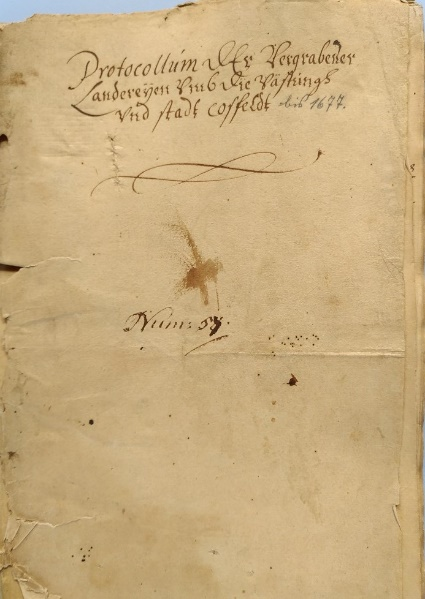 Protocollum der Vergrabener
Landereyen vmb die Vastungs
Vnd stadt Cosfeldt bis 1677.
Num: 57.